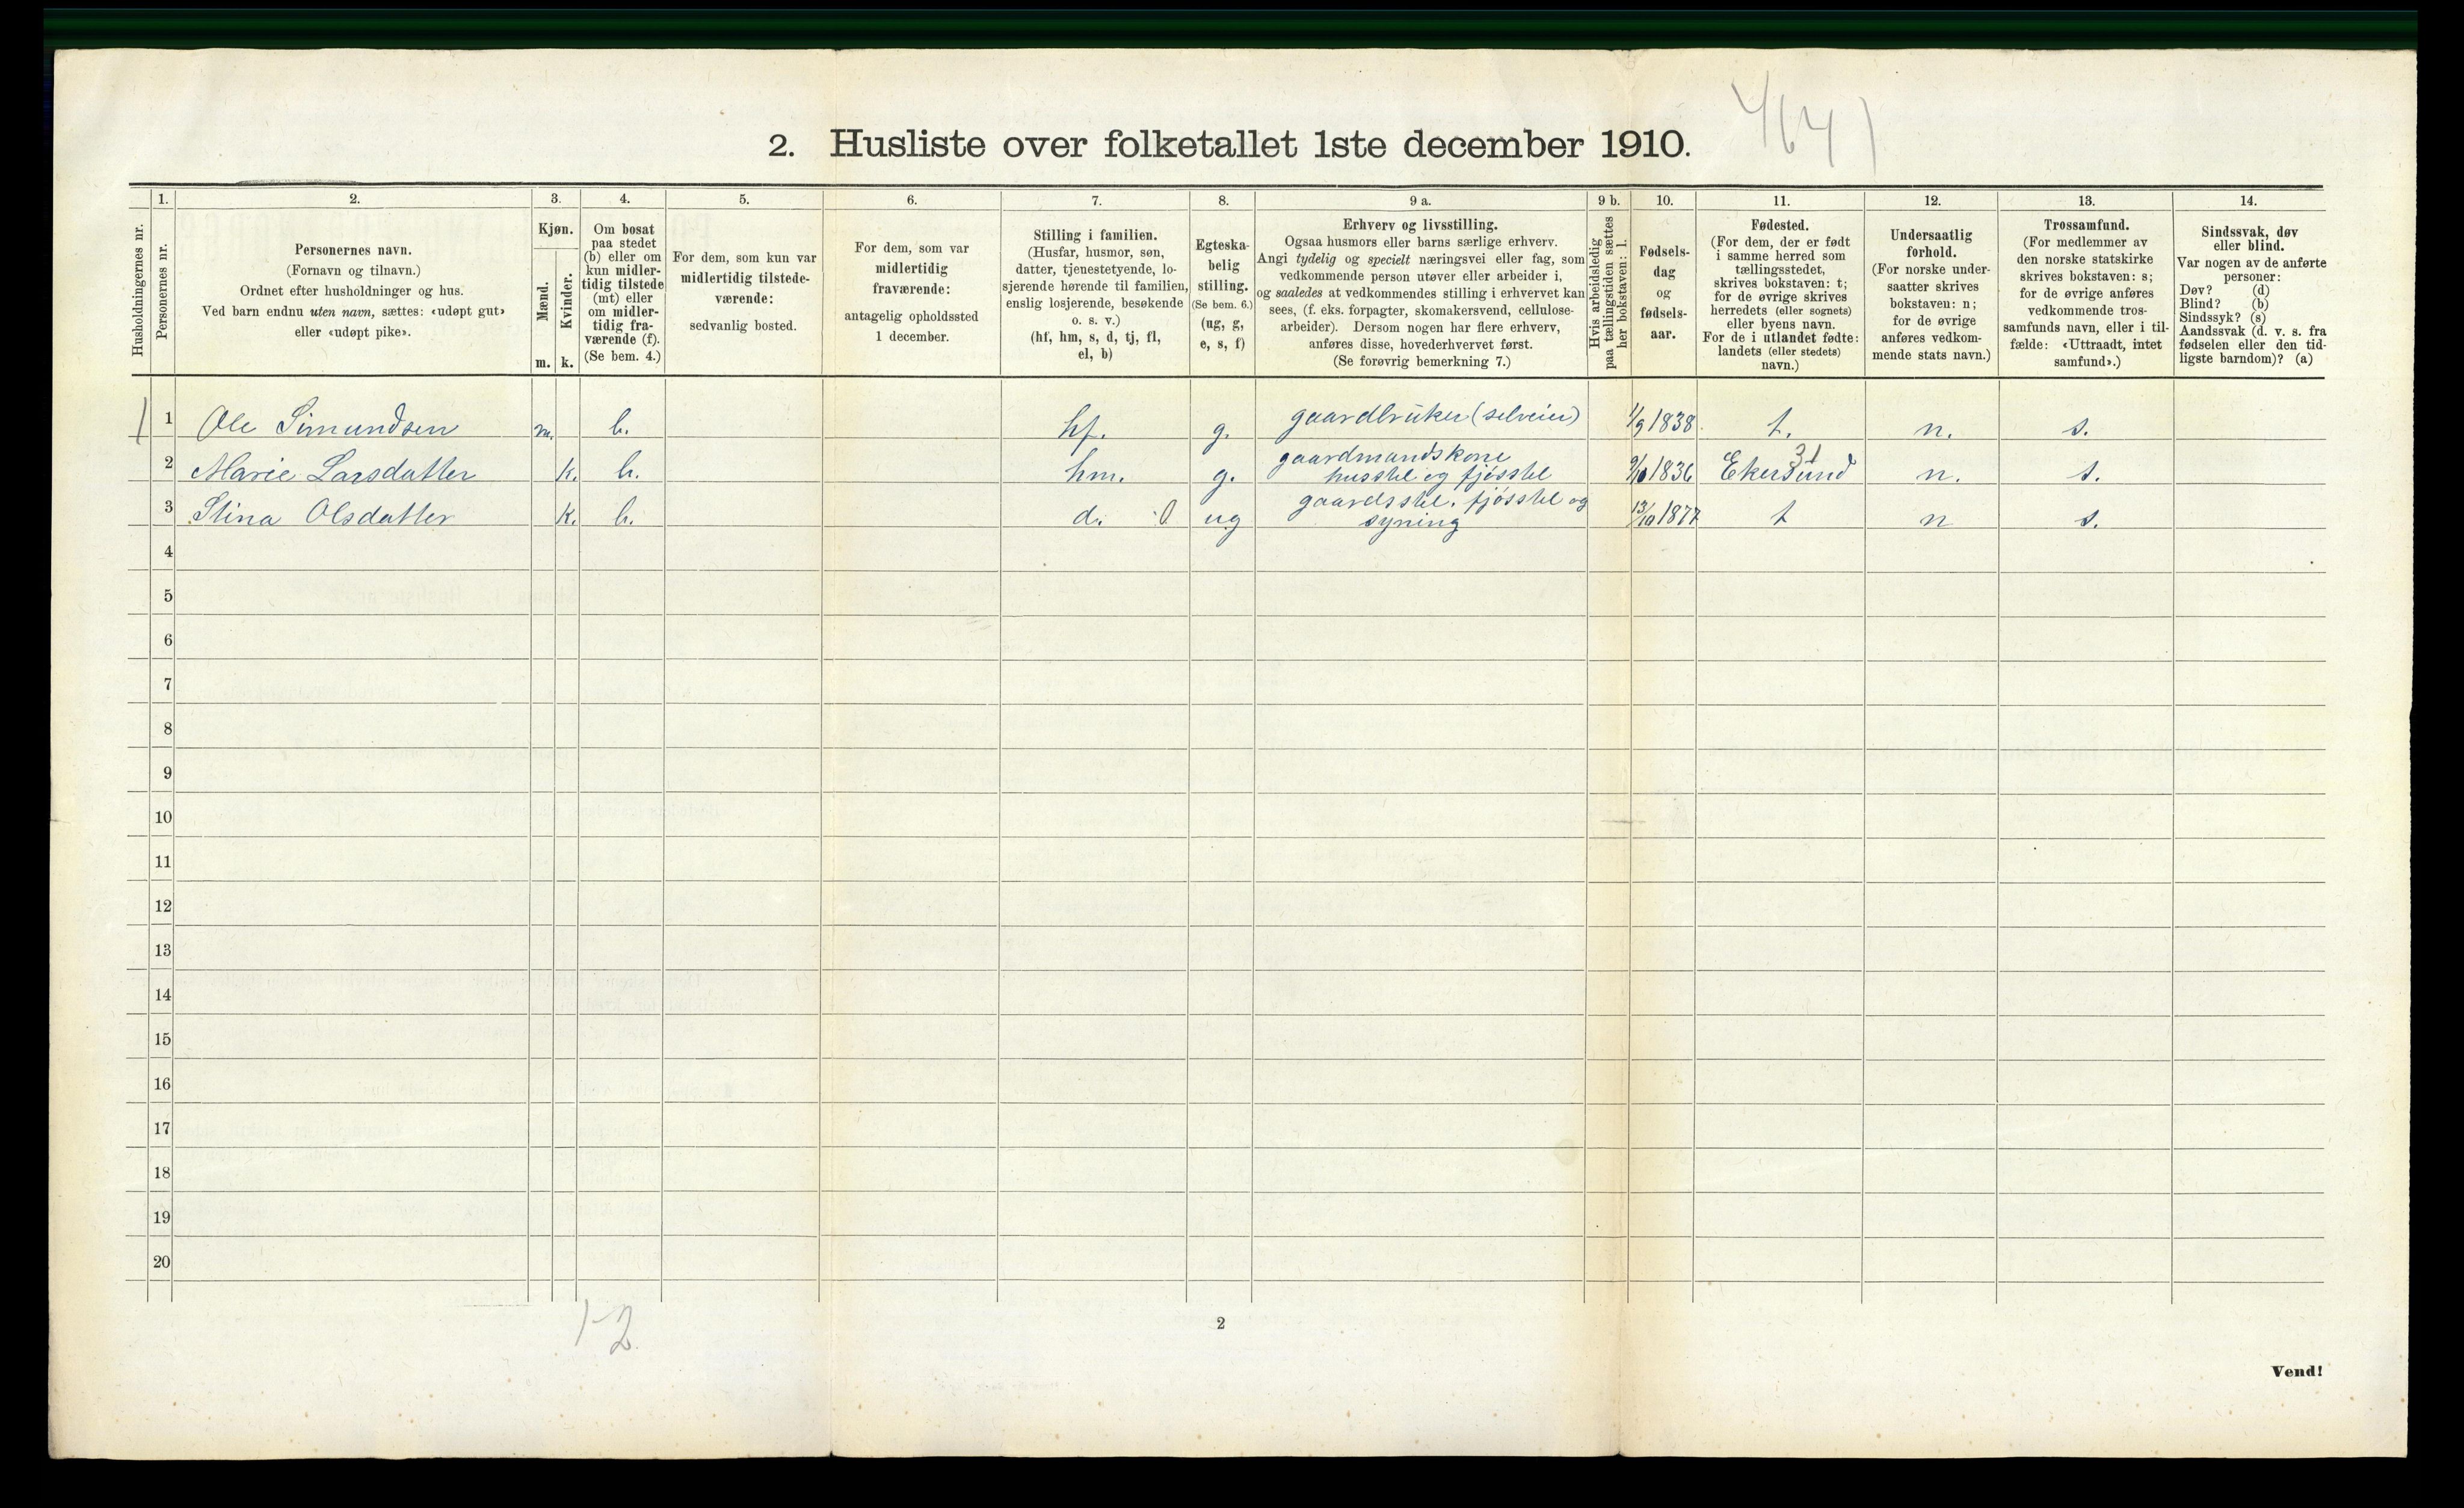 4641
2. Husliste over folketallet 1ste december 1910.
Husholdningernes nr.
1.
Personernes nr.
2.
Personernes navn.
(Fornavn og tilnavn.)
Ordnet efter husholdninger og hus.
Ved barn endnu uten navn, sættes: «udøpt gut»
eller «udøpt pike».
3.
Kjøn.
Mænd.
Kvinder.
m. k.
4.
Om bosat
paa stedet
(b) eller om
kun midler-
tidig tilstede
(mt) eller
om midler-
tidig fra-
værende (f).
(Se bem. 4.)
5.
For dem, som kun var
midlertidig tilstede-
værende:
sedvanlig bosted.
6.
For dem, som var
midlertidig
fraværende:
antagelig opholdssted
1 december.
7.
Stilling i familien.
(Husfar, husmor, søn,
datter, tjenestetyende, lo-
sjerende hørende til familien,
enslig losjerende, besøkende
o. s. v.)
(hf, hm, s, d, tj, fl,
el, b)
8.
Egteska-
belig
stilling.
(Se bem. 6.)
(ug, g,
e, s, f)
9 a.
Erhverv og livsstilling.
Ogsaa husmors eller barns særlige erhverv.
Angi tydelig og specielt næringsvei eller fag, som
vedkommende person utøver eller arbeider i,
og saaledes at vedkommendes stilling i erhvervet kan
sees, (f. eks. forpagter, skomakersvend, cellulose-
arbeider). Dersom nogen har flere erhverv,
anføres disse, hovederhvervet først.
(Se forøvrig bemerkning 7.)
9 b.
Hvis arbeidsledig
paa tællingstiden sættes
her bokstaven: l.
10.
Fødsels-
dag
og
fødsels-
aar.
11.
Fødested.
(For dem, der er født
i samme herred som
tællingsstedet,
skrives bokstaven: t;
for de øvrige skrives
herredets (eller sognets)
eller byens navn.
For de i utlandet fødte:
landets (eller stedets)
navn.)
12.
Undersaatlig
forhold.
(For norske under-
saatter skrives
bokstaven: n;
for de øvrige
anføres vedkom-
mende stats navn.)
13.
Trossamfund.
(For medlemmer av
den norske statskirke
skrives bokstaven: s;
for de øvrige anføres
vedkommende tros-
samfunds navn, eller i til-
fælde: «Uttraadt, intet
samfund».)
14.
Sindssvak, døv
eller blind.
Var nogen av de anførte
personer:
Døv? (d)
Blind? (b)
Sindssyk? (s)
Aandssvak (d. v. s. fra
fødselen eller den tid-
ligste barndom)? (a)
1 1 Ole Simundsen m. b. hf. g. gaardbruker (selveier) 1/9 1838 t. n. s.
2 Marie Larsdatter k. b. hm. g. gaardmandskone husstel og fjösstel 9/10 1836 Ekersund 31 n. s.
3 Stina Olsdatter k. b. d. 0 ug gaardsstel, fjösstel og syning 13/10 1877 t n s.
4
5
6
7
8
9
10
11
12
13
14
15
16
17
18
19
20
1-2
2
Vend!